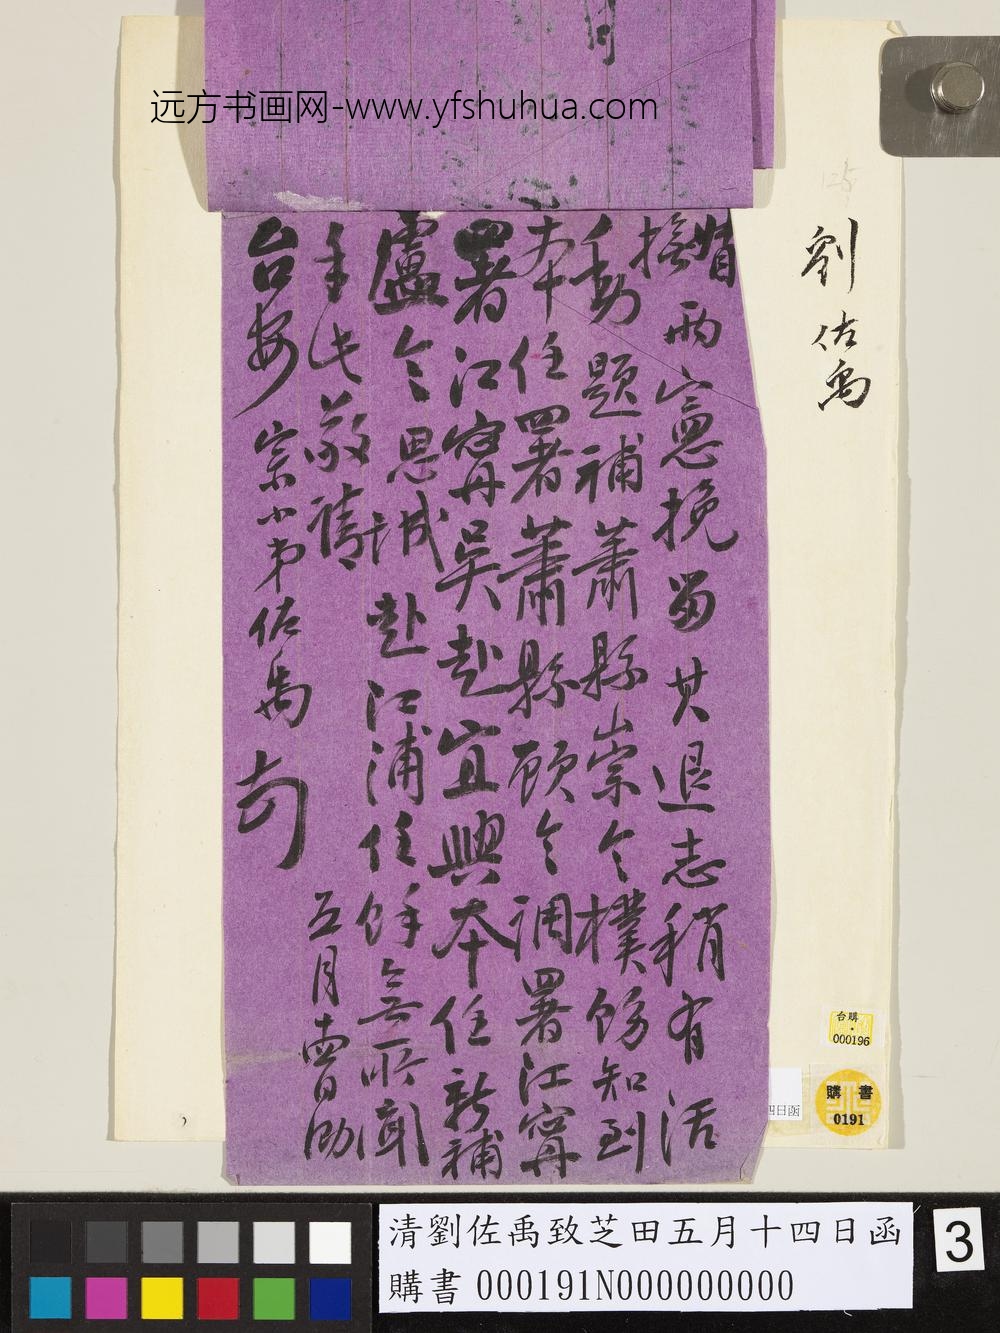 远方书画网-www.yfshuhua.com
劉佐禹
督撫兩憲挽留其退志稍有活
動題補蕭縣崇令樸飭知到
本任署蕭縣顧令調署江寧
署江寧吳赴宜興本任新補
盧令思誠赴江浦任餘無所聞
手此敬請
台安 宗小弟佐禹頓
五月十四日泐
台購
000196
四日函
購書
0191
清劉佐禹致芝田五月十四日函
購書 000191N000000000
3